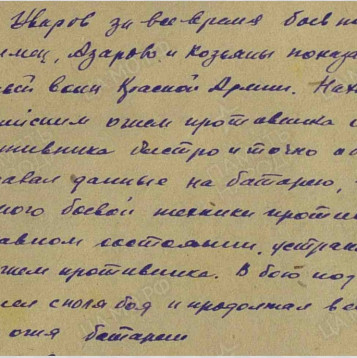 Уваров за все время боев по
имец, Азарово и Козьяны показа
ый воин Красной Армии. Нах
ийским огнем противника о
тивника быстро и точно о
давал данные на батарею,
много боевой техники проти
равном состоянии, устран
огнем противника. В бою под
шел с поля боя и продолжал в
огня батареи